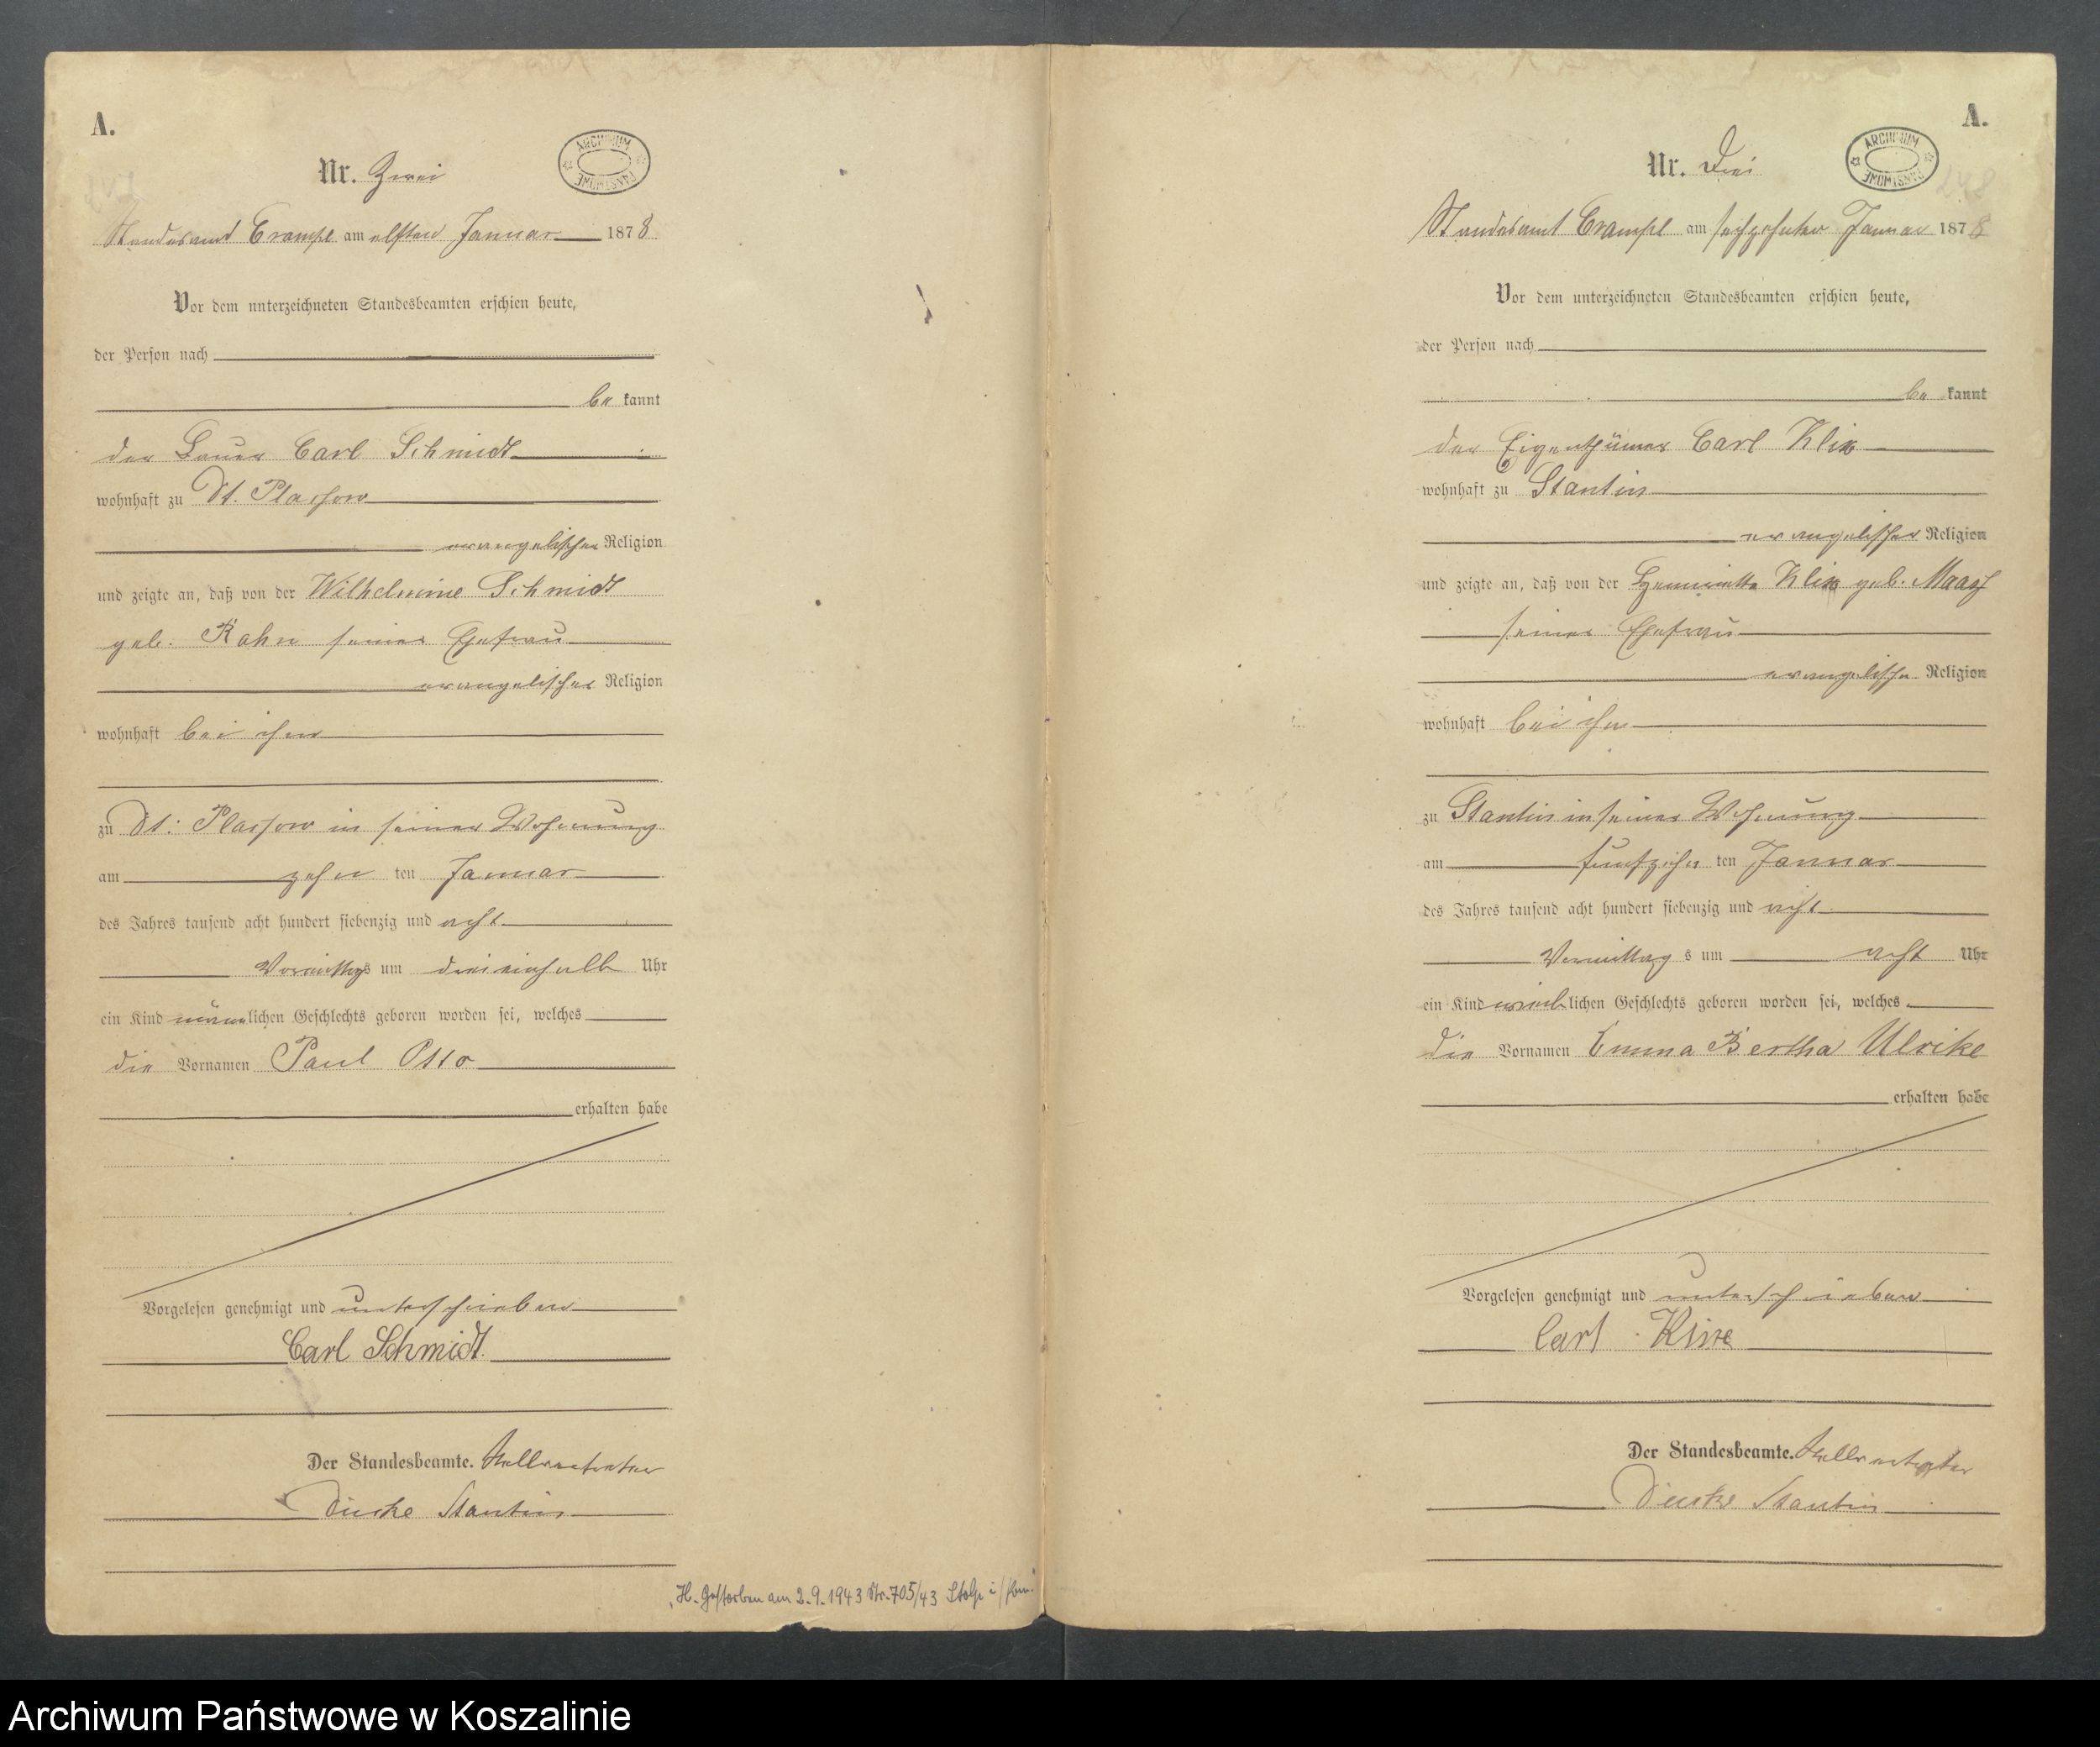 A.
Nr. Zwei
ARCHIWUM PAŃSTWOWE
Standesamt Crampe am elften Januar 1878
Vor dem unterzeichneten Standesbeamten erschien heute,
der Person nach
be kannt
der Bauer Carl Schmidt
wohnhaft zu Dt. Plassow
evangelischer Religion
und zeigte an, daß von der Wilhelmine Schmidt
geb. Rahn seiner Ehefrau
evangelischer Religion
wohnhaft bei ihm
zu Dt. Plassow in seiner Wohnung
am zehn ten Januar
des Jahres tausend acht hundert siebenzig und acht
Vormittags um dreieinhalb Uhr
ein Kind männlichen Geschlechts geboren worden sei, welches
die Vornamen Paul Otto
erhalten habe
Vorgelesen genehmigt und unterschrieben
Carl Schmidt
Der Standesbeamte. Stellvertreter
Stantin
H. Gestorben am 2.9.1943 Nr. 705/43 Stolp i/Pom.
A.
Nr. Drei
ARCHIWUM PAŃSTWOWE
248
Standesamt Crampe am sechzehnten Januar 1878
Vor dem unterzeichneten Standesbeamten erschien heute,
der Person nach
be kannt
der Eigenthümer Carl Klix
wohnhaft zu Stantin
evangelischer Religion
und zeigte an, daß von der Henriette Klix geb. Maaß
seiner Ehefrau
evangelischer Religion
wohnhaft bei ihm
zu Stantin in seiner Wohnung
am fünfzehn ten Januar
des Jahres tausend acht hundert siebenzig und acht
Vormittag s um acht Uhr
ein Kind weiblichen Geschlechts geboren worden sei, welches
die Vornamen Emma Bertha Ulrike
erhalten habe
Vorgelesen genehmigt und unterschrieben
Carl
Der Standesbeamte. Stellvertreter
Stantin
Archiwum Państwowe w Koszalinie